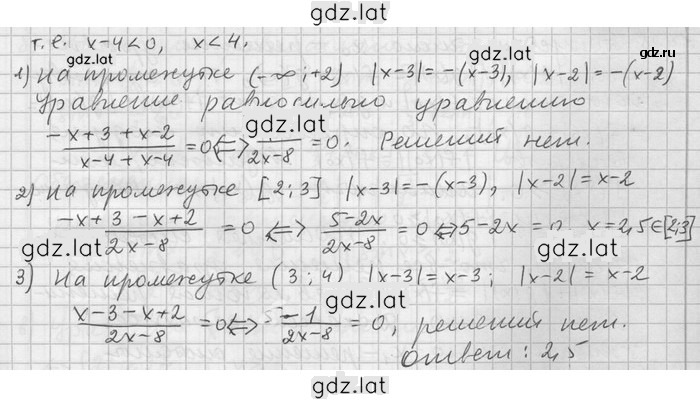 gdz.lat
т.е. x-4<0, x<4.
gdz.lat
gdz.lat
1) На промежутке (-∞;+2) |x-3|=-(x-3), |x-2|=-(x-2)
Уравнение равносильно уравнению
gdz.lat
(-x+3+x-2)/(x-4+x-4) = 0 <=> /(2x-8) = 0. Решений нет.
gdz.lat
2) На промежутке [2;3] |x-3|=-(x-3), |x-2|=x-2
(-x+3-x+2)/(2x-8) = 0 <=> (5-2x)/(2x-8) = 0 <=> 5-2x = 0, x=2,5∈[2;3]
gdz.lat
gdz.lat
3) На промежутке (3;4) |x-3|=x-3; |x-2|=x-2
gdz.lat
(x-3-x+2)/(2x-8) = 0 <=> -1/(2x-8) = 0, решений нет.
Ответ: 2,5
gdz.lat
gdz.lat